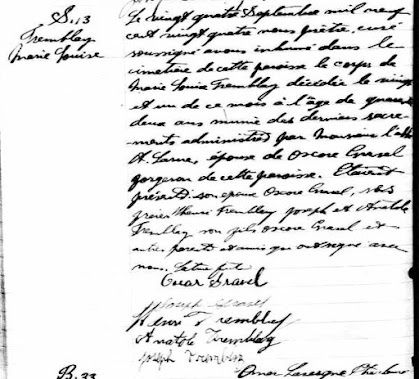 S. 13
Tremblay
Marie Louise
Le vingt quatre Septembre mil neuf
cent vingt quatre nous prêtre, curé
soussigné avons inhumé dans le
cimetière de cette paroisse le corps de
Marie Louise Tremblay décédée le vingt
et un de ce mois à l'âge de quarante
deux ans munie des derniers sacre-
ments administrés par Monsieur l'abbé
A. épouse de Oscar Gravel
forgeron de cette paroisse. Etaient
présents son époux Oscar Gravel, ses
frères Henri Tremblay Joseph et Anatole
Tremblay son fils Oscar Gravel et
autres parents et amis qui ont signé avec
nous. Lecture faite
Oscar Gravel
Joseph Gravel
Henri Tremblay
Anatole Tremblay
Joseph Tremblay
B. 33
Omer Ptre curé